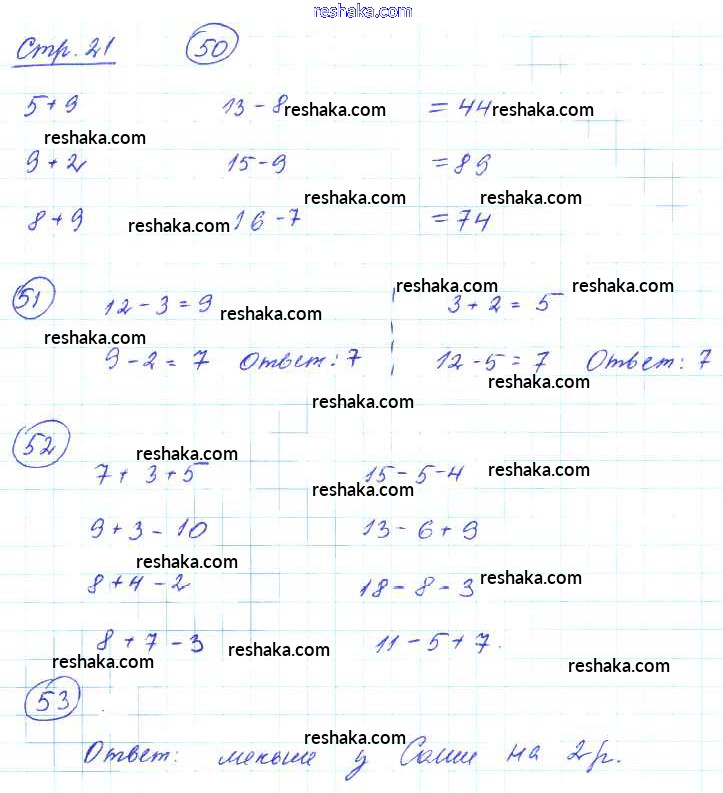 reshaka.com
Стр. 21 50
5 + 9 13 - 8 reshaka.com = 44 reshaka.com
reshaka.com
9 + 2 15 - 9 = 89
reshaka.com reshaka.com
8 + 9 reshaka.com 16 - 7 = 74
reshaka.com reshaka.com
51 12 - 3 = 9 reshaka.com 3 + 2 = 5
reshaka.com
9 - 2 = 7 Ответ: 7 12 - 5 = 7 Ответ: 7
reshaka.com
reshaka.com
52 reshaka.com
7 + 3 + 5 15 - 5 - 4 reshaka.com
reshaka.com
9 + 3 - 10 13 - 6 + 9
reshaka.com
8 + 4 - 2 18 - 8 - 3 reshaka.com
8 + 7 - 3 reshaka.com 11 - 5 + 7
reshaka.com reshaka.com
53
reshaka.com
Ответ: меньше у Саши на 2 р.
reshaka.com